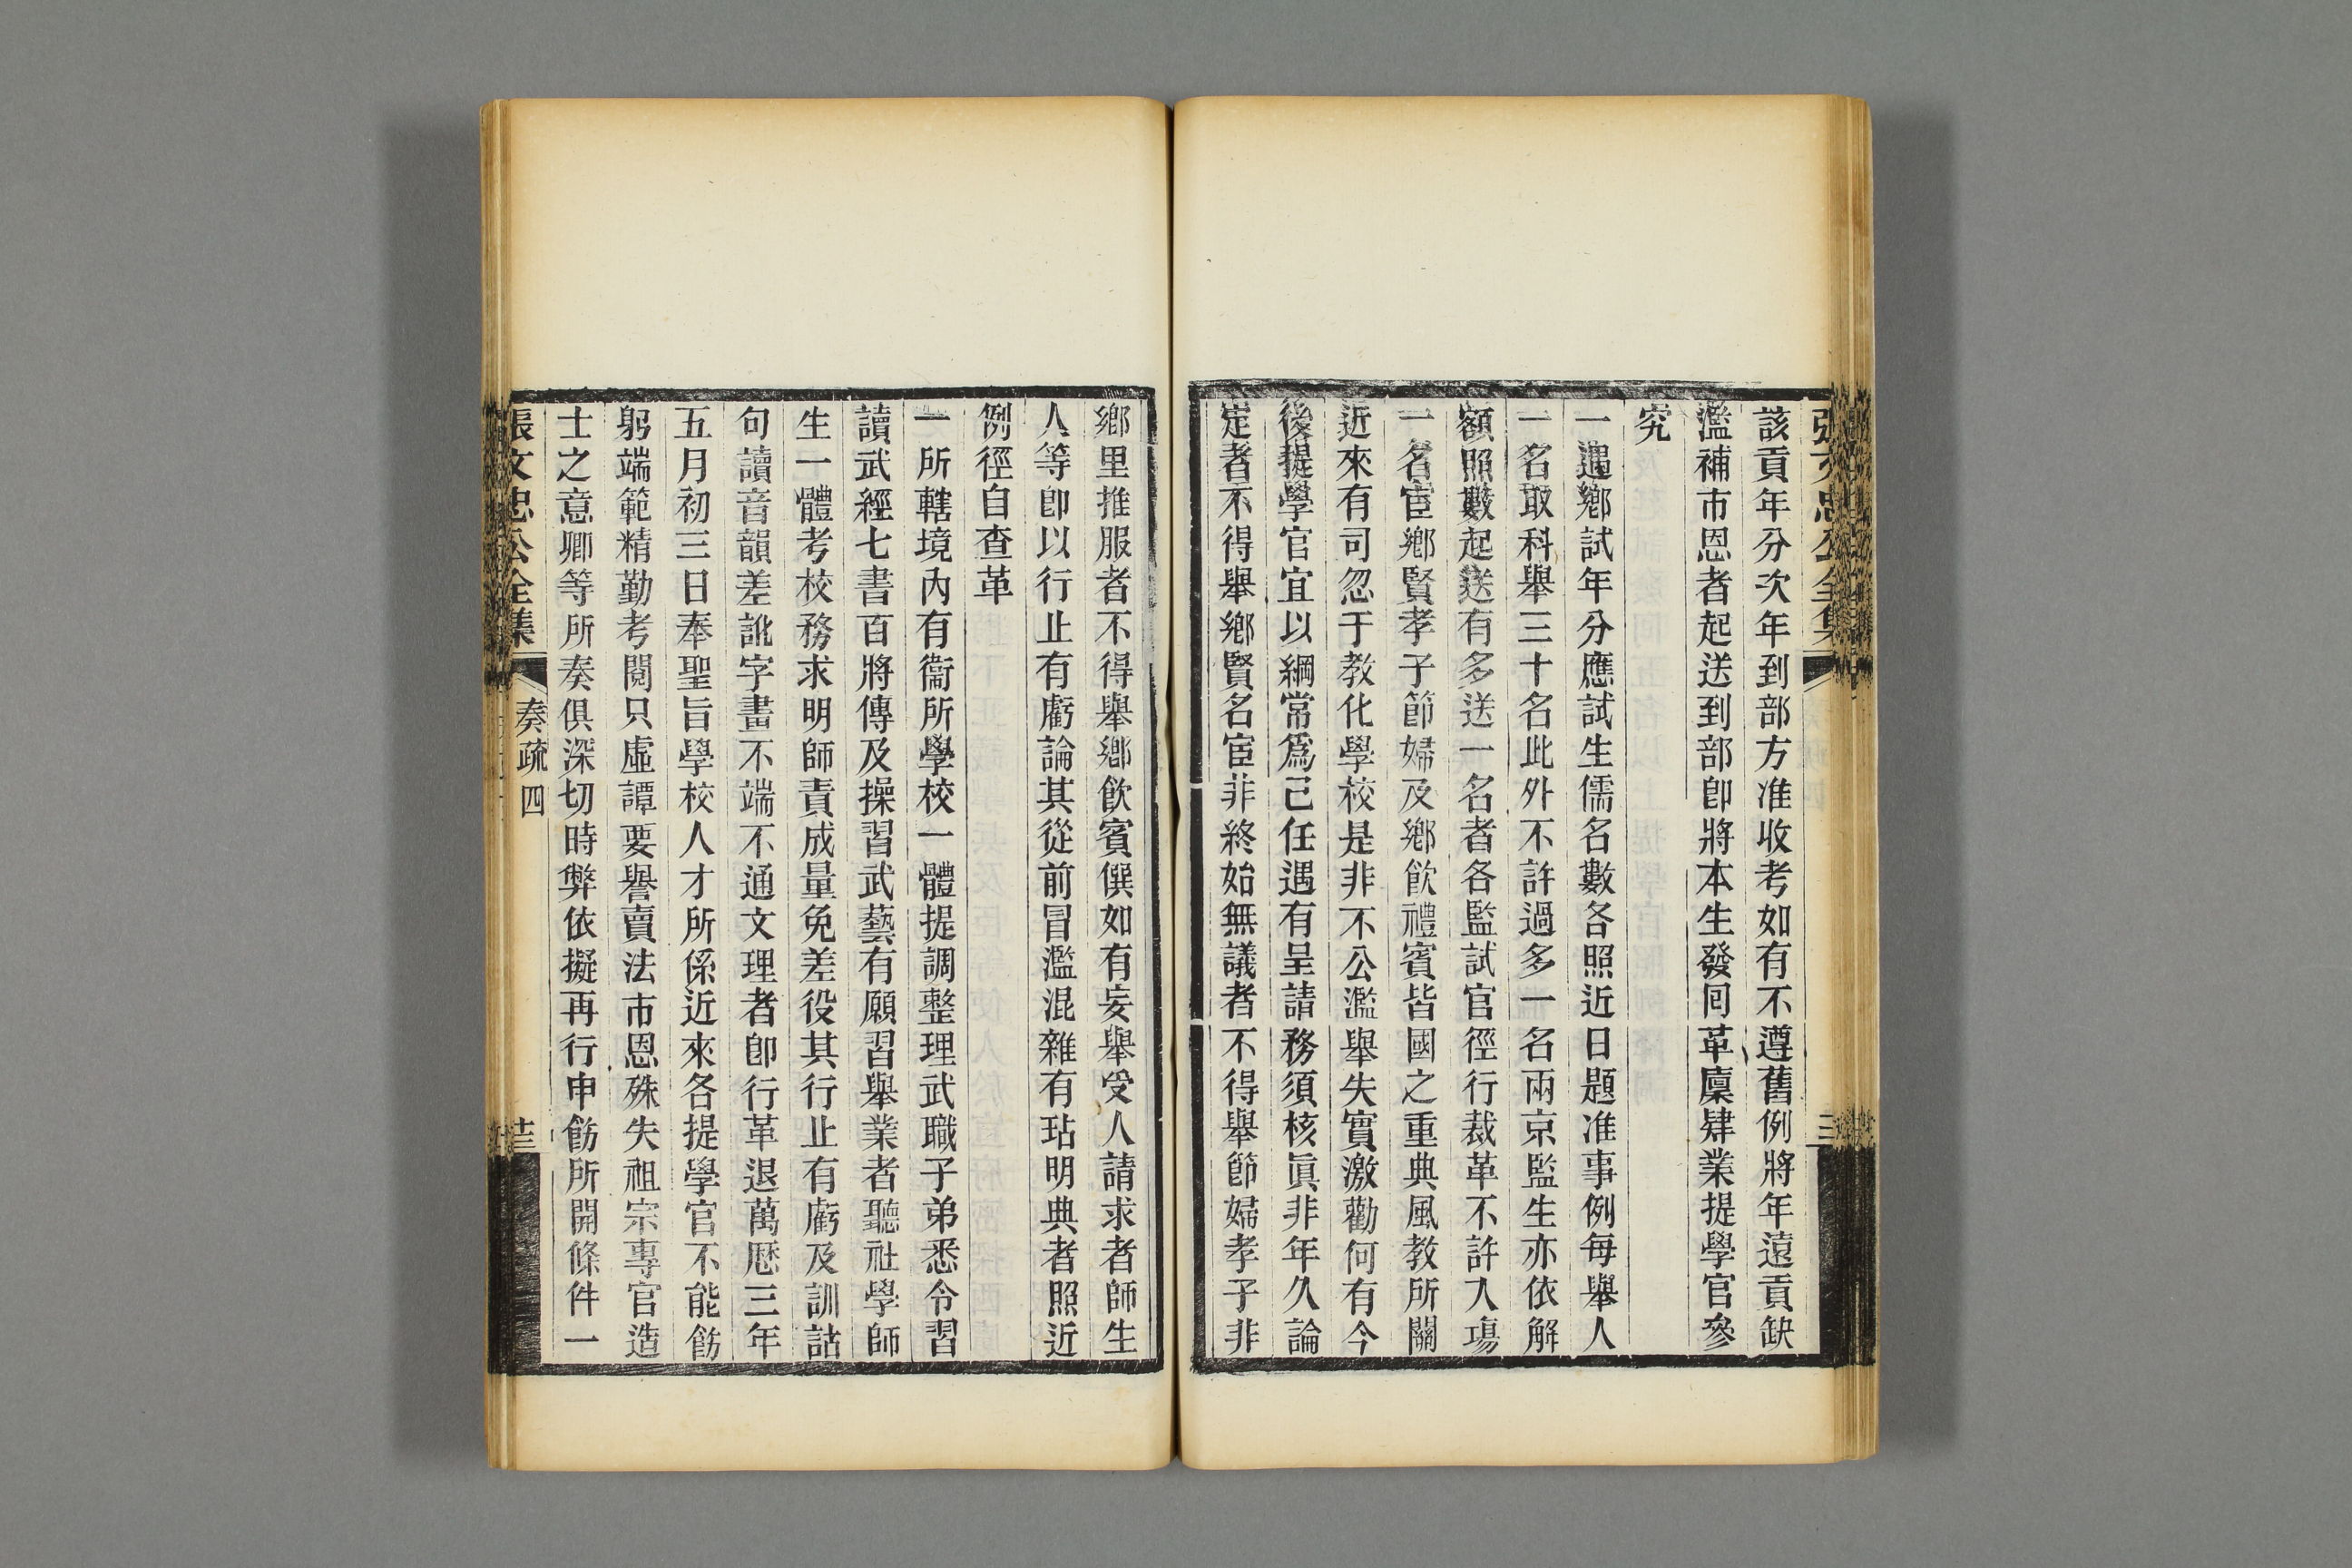 該貢年分次年到部方准收考如有不遵舊例將年遠貢缺
濫補市恩者起送到部卽將本生發囘革廩肄業提學官參
究
一遇鄉試年分應試生儒名數各照近日題准事例每舉人
一名取科舉三十名此外不許過多一名兩京監生亦依解
額照數起送有多送一名者各監試官徑行裁革不許入塲
一名宦鄉賢孝子節婦及鄉飮禮賓皆國之重典風教所關
近來有司忽于教化學校是非不公濫舉失實激勸何有今
後提學官宜以綱常爲己任遇有呈請務須核眞非年久論
定者不得舉鄉賢名宦非終始無議者不得舉節婦孝子非
鄉里推服者不得舉鄉飮賓僎如有妄舉受人請求者師生
人等卽以行止有虧論其從前冒濫混雜有玷明典者照近
例徑自查革
一所轄境內有衞所學校一體提調整理武職子弟悉令習
讀武經七書百將傳及操習武藝有願習舉業者聽社學師
生一體考校務求明師責成量免差役其行止有虧及訓詁
句讀音韻差訛字畫不端不通文理者卽行革退萬厯三年
五月初三日奉聖旨學校人才所係近來各提學官不能飭
躬端範精勤考閱只虛譚要譽賣法市恩殊失祖宗專官造
士之意卿等所奏俱深切時弊依擬再行申飭所開條件一
張文忠公全集 奏疏四